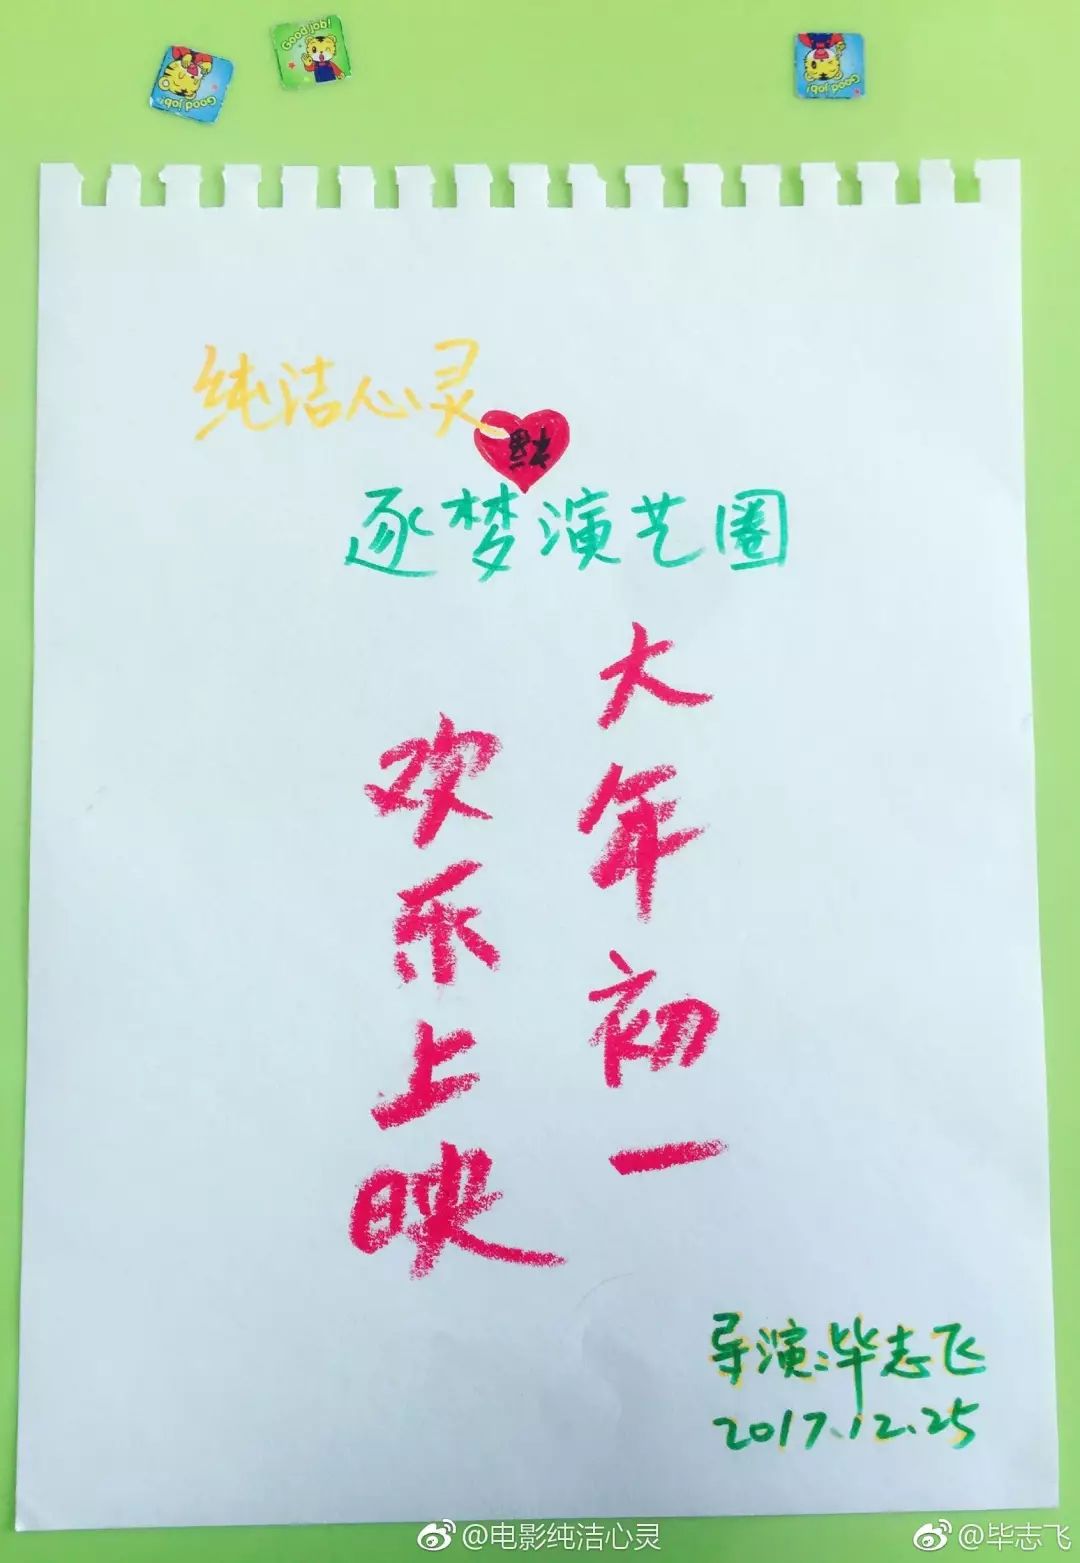 Good job!
Good job!
Good job!
纯洁心灵
福
逐梦演艺圈
大年初一
欢乐上映
导演:毕志飞
2017.12.25
@电影纯洁心灵
@毕志飞